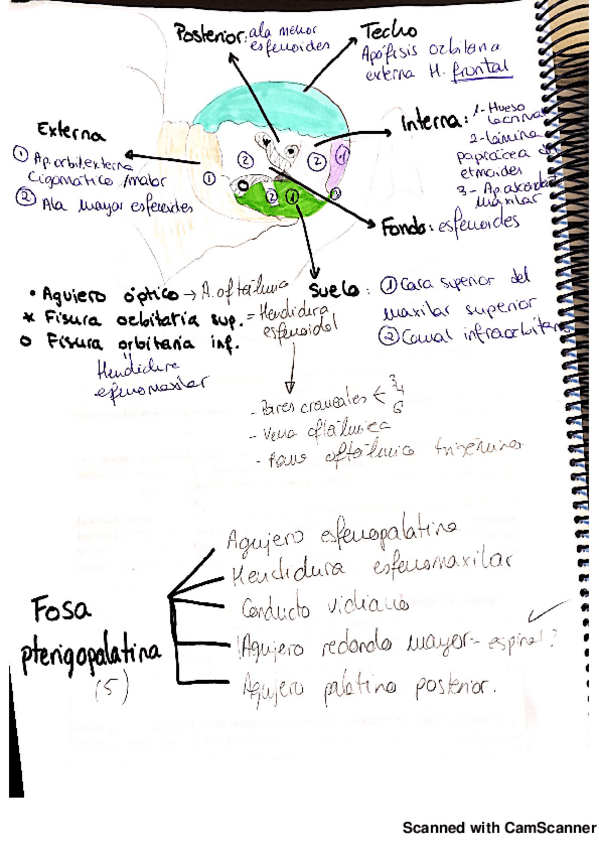 Posterior: ala menor
esfenoides
Techo
Apófisis orbitaria
externa H. frontal
Externa
① Ap. orbit. externa
Cigomático/malar
② Ala mayor esfenoides
Interna: 1- Hueso
lacrimal
2- Lámina
papirácea
etmoides
3- Ap.
maxilar
② ② ① ① ② ①
Fondo: esfenoides
• Agujero óptico → A. oftálmica
* Fisura orbitaria sup. = Hendidura
esfenoidal
o Fisura orbitaria inf.
Hendidura
esfenomaxilar
Suelo: ① Cara superior del
maxilar superior
② Canal infraorbitario
- Pares craneales < 3 4 6
- Vena oftálmica
- Ramo oftálmico trigémino
Fosa
pterigopalatina
(5)
Agujero esfenopalatino
Hendidura esfenomaxilar
Conducto vidiano
!Agujero redondo mayor - espinal?
Agujero palatino posterior.
Scanned with CamScanner